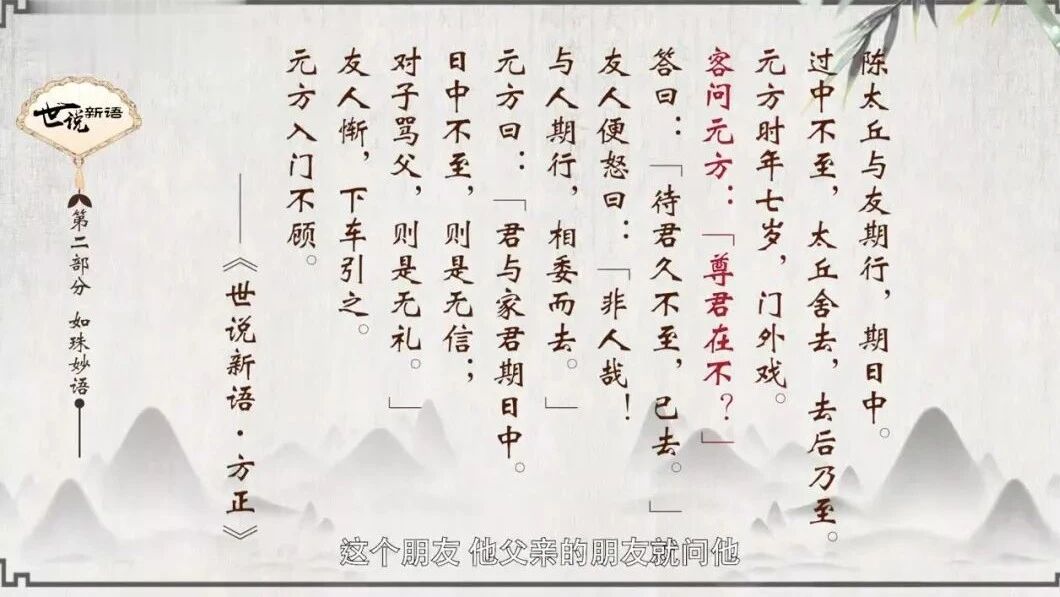 陈太丘与友期行，期日中。
过中不至，太丘舍去，去后乃至。
元方时年七岁，门外戏。
客问元方：「尊君在不？」
答曰：「待君久不至，已去。」
友人便怒曰：「非人哉！
与人期行，相委而去。」
元方曰：「君与家君期日中。
日中不至，则是无信；
对子骂父，则是无礼。」
友人惭，下车引之。
元方入门不顾。
——《世说新语·方正》
世说新语
第二部分 如珠妙语
这个朋友 他父亲的朋友就问他